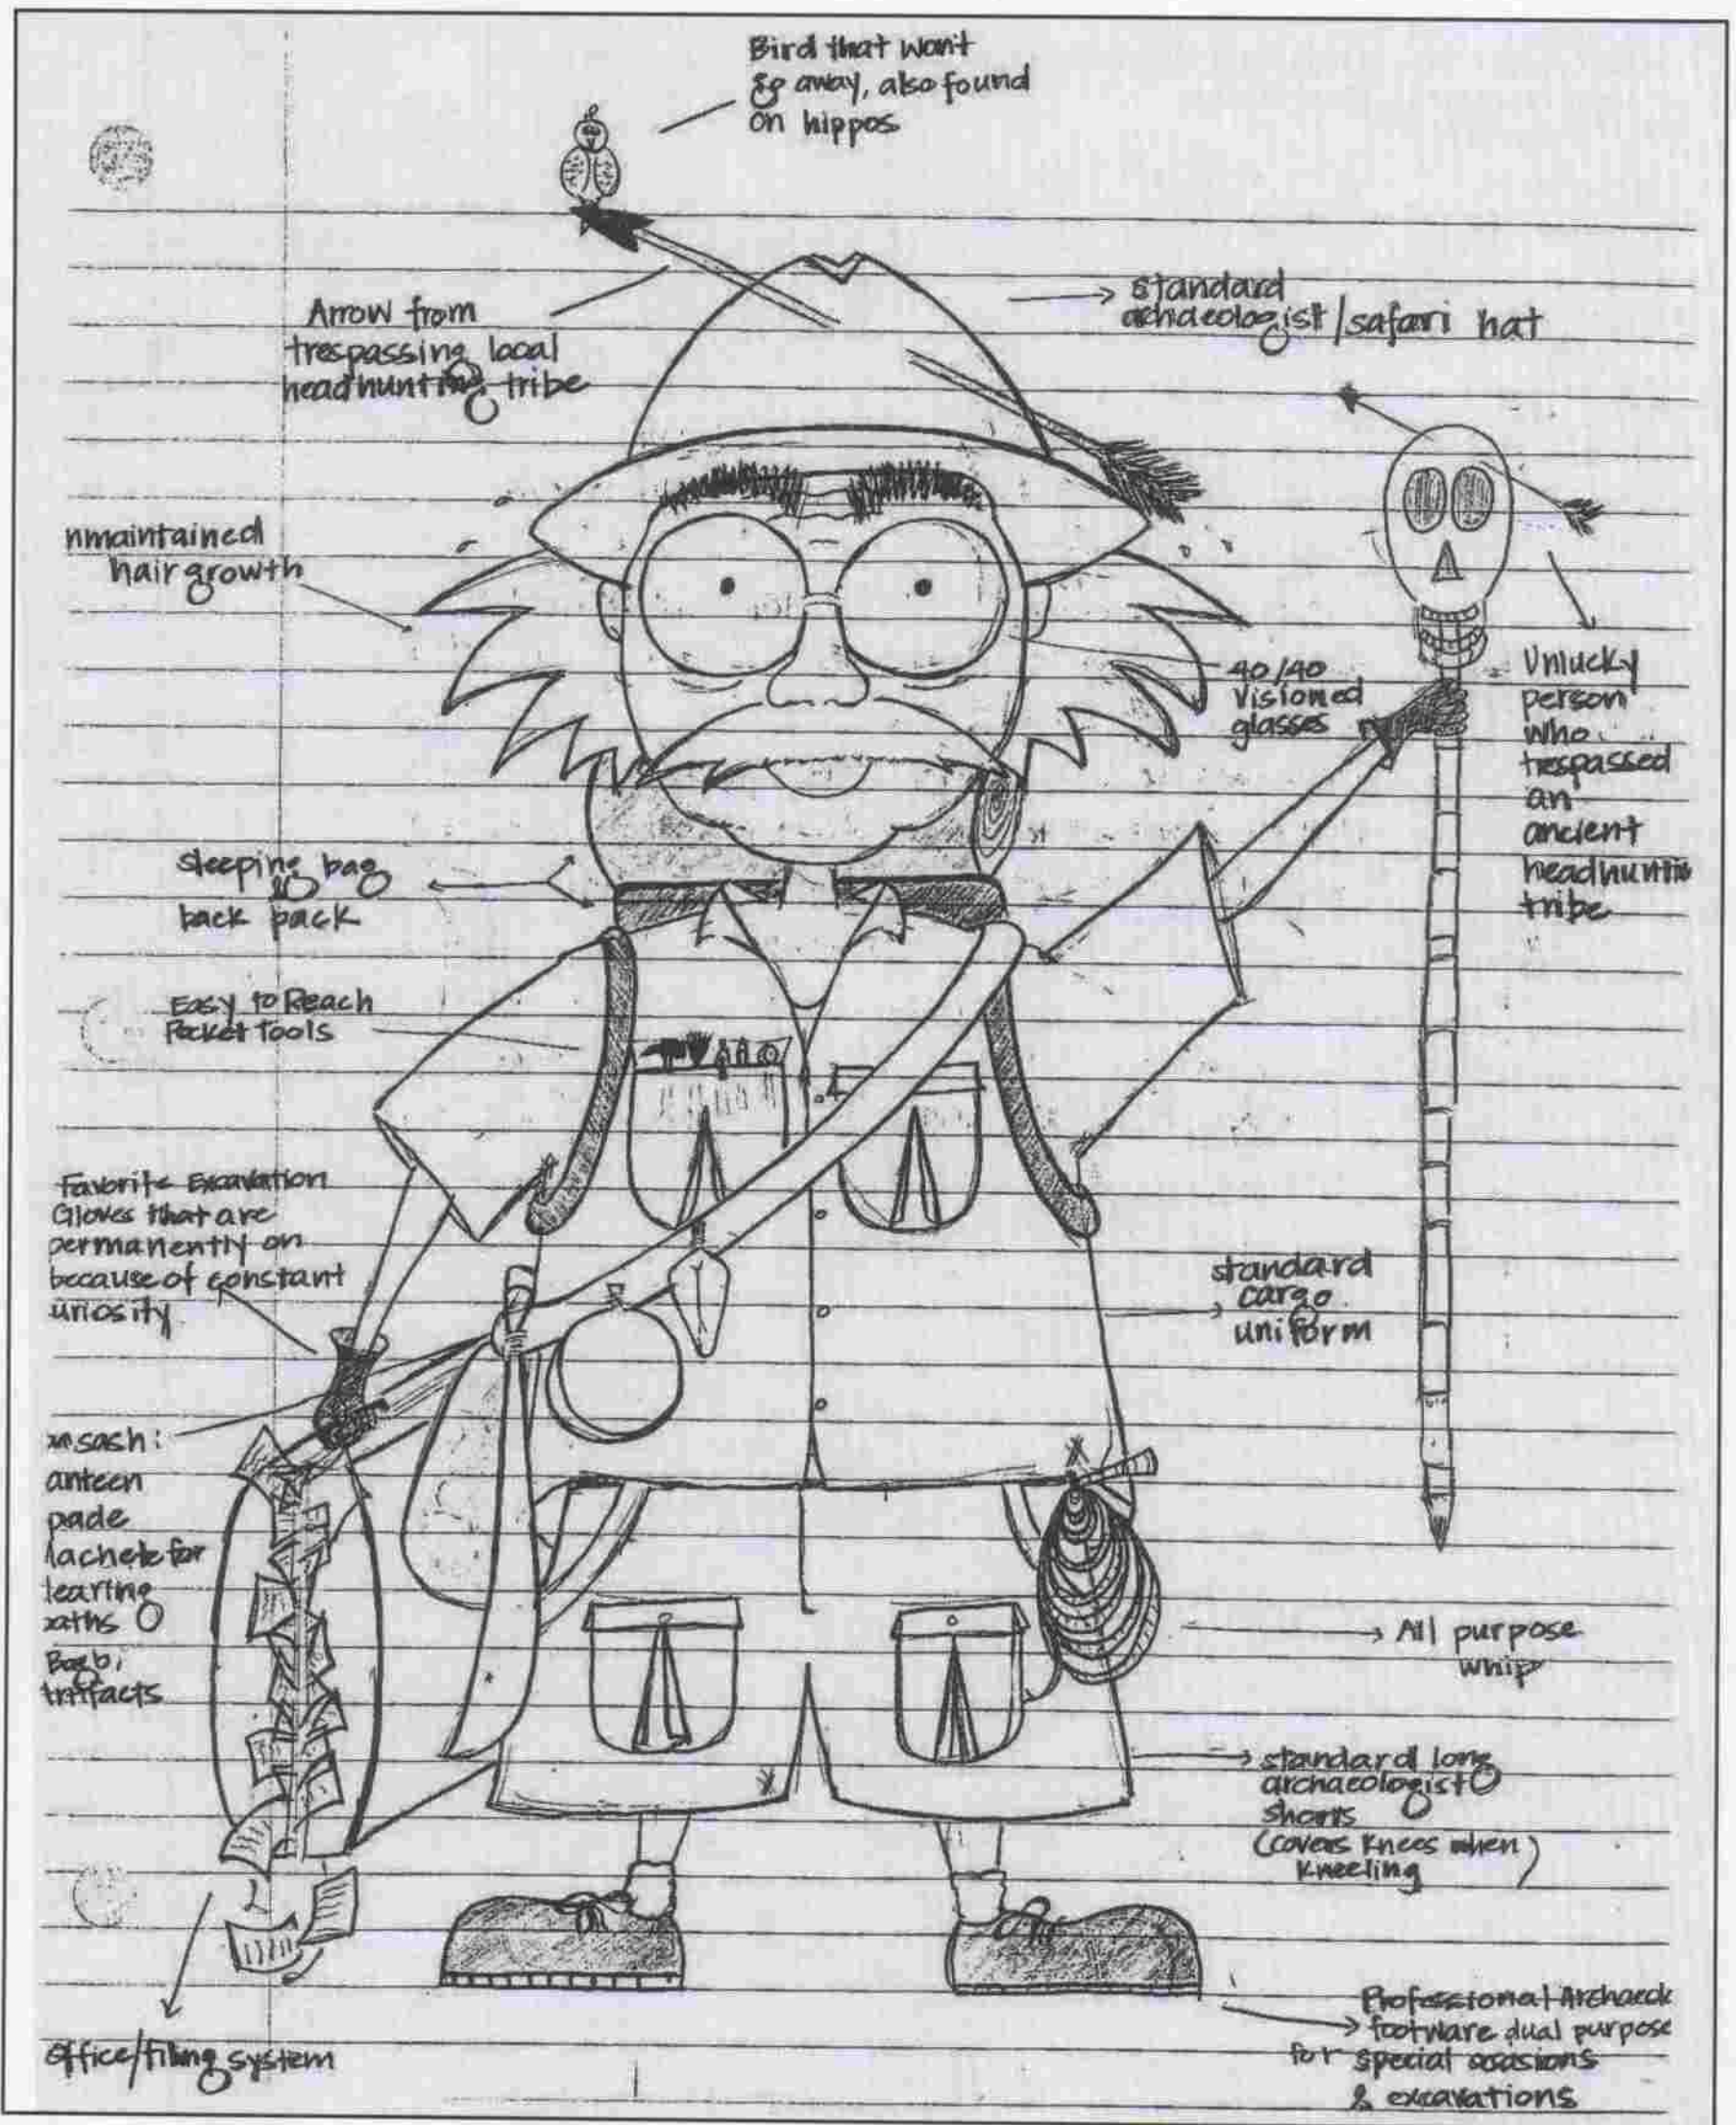 Bird that won't
go away, also found
on hippos
Arrow from
trespassing local
headhunting tribe
standard
archaeologist/safari hat
nmaintained
hair growth
40/40
visioned
glasses
Unlucky
person
who
trespassed
an
ancient
headhuntin
tribe
sleeping bag
back pack
Easy to Reach
Pocket Tools
Favorite Excavation
Gloves that are
permanently on
because of constant
uriosity
standard
cargo
uniform
sash:
anteen
pade
achete for
learing
aths
Bag:
artifacts
All purpose
whip
standard long
archaeologist
shorts
(covers knees when)
kneeling
Office/filing system
Professional Archaeol
footware dual purpose
for special occasions
& excavations